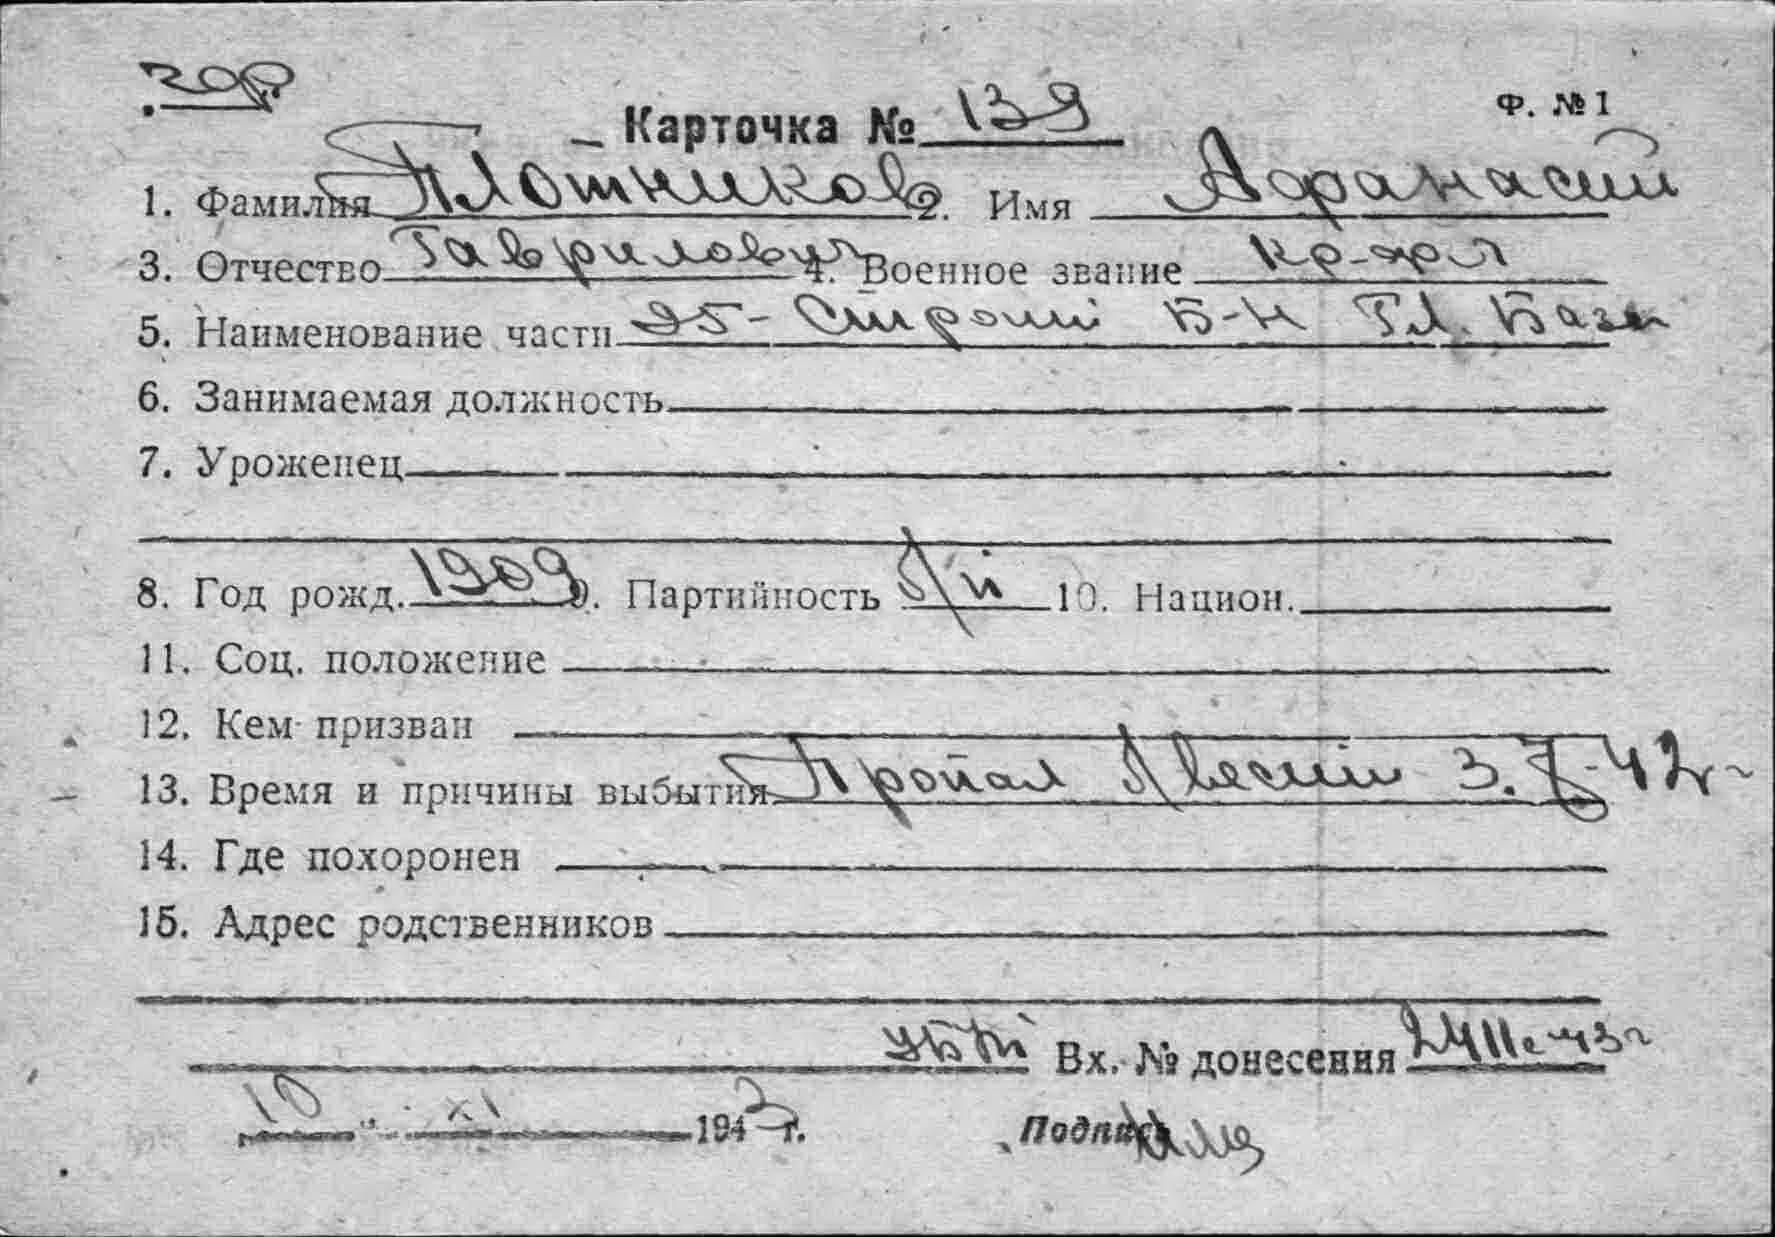 Карточка № 139
Ф. №1
1. Фамилия Плотников 2. Имя Афанасий
3. Отчество Гаврилович 4. Военное звание кр-фл
5. Наименование части 95- Строит Б-н Гл. Базы
6. Занимаемая должность
7. Уроженец
8. Год рожд. 1909 9. Партийность б/п 10. Национ.
11. Соц. положение
12. Кем призван
13. Время и причины выбытия Пропал б/вести 3.7-42г
14. Где похоронен
15. Адрес родственников
Вх. № донесения
10 " XI 1943 г. Подпись